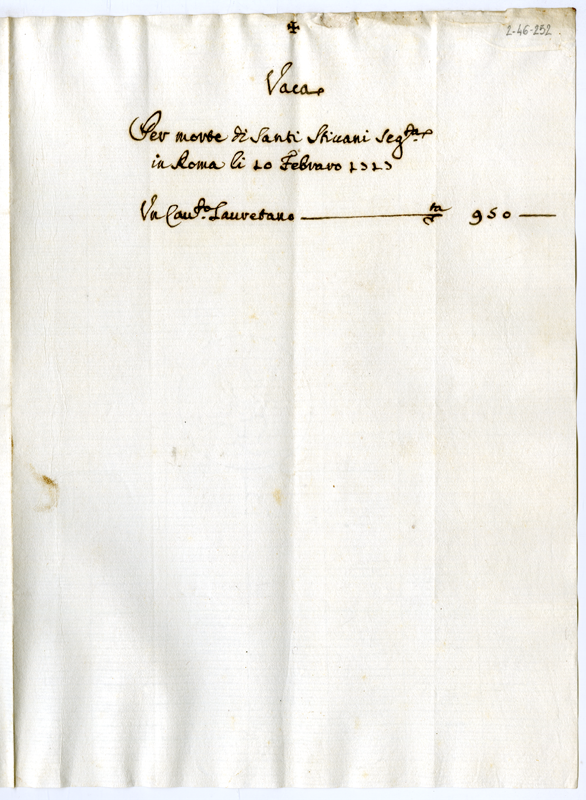 ✠
2-46-252
Vaca
Per morte di Santi Stivani Seg.ta
in Roma li 20 Febraro
Un Cau.to Lauretano ra 950